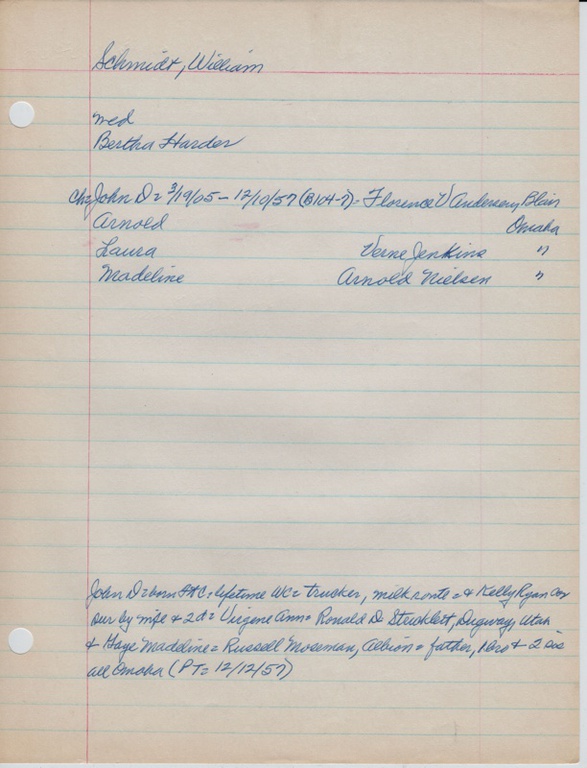 Schmidt, William
med
Bertha Harder
Ch= John D= 3/19/05 - 12/10/57 (B104-7)- Florence V Andersen, Blair
Arnold Omaha
Laura Verne Jenkins "
Madeline Arnold Nielsen "
John D= born Ft C= lifetime WC= trucker, milk route = & Kelly Ryan Co
sur by wife & 2d= Virgene Ann= Ronald D. Dugway, Utah
& Madeline= Russell Moseman, Albion= father, 1 bro & 2 sis
all Omaha (PT= 12/12/57)